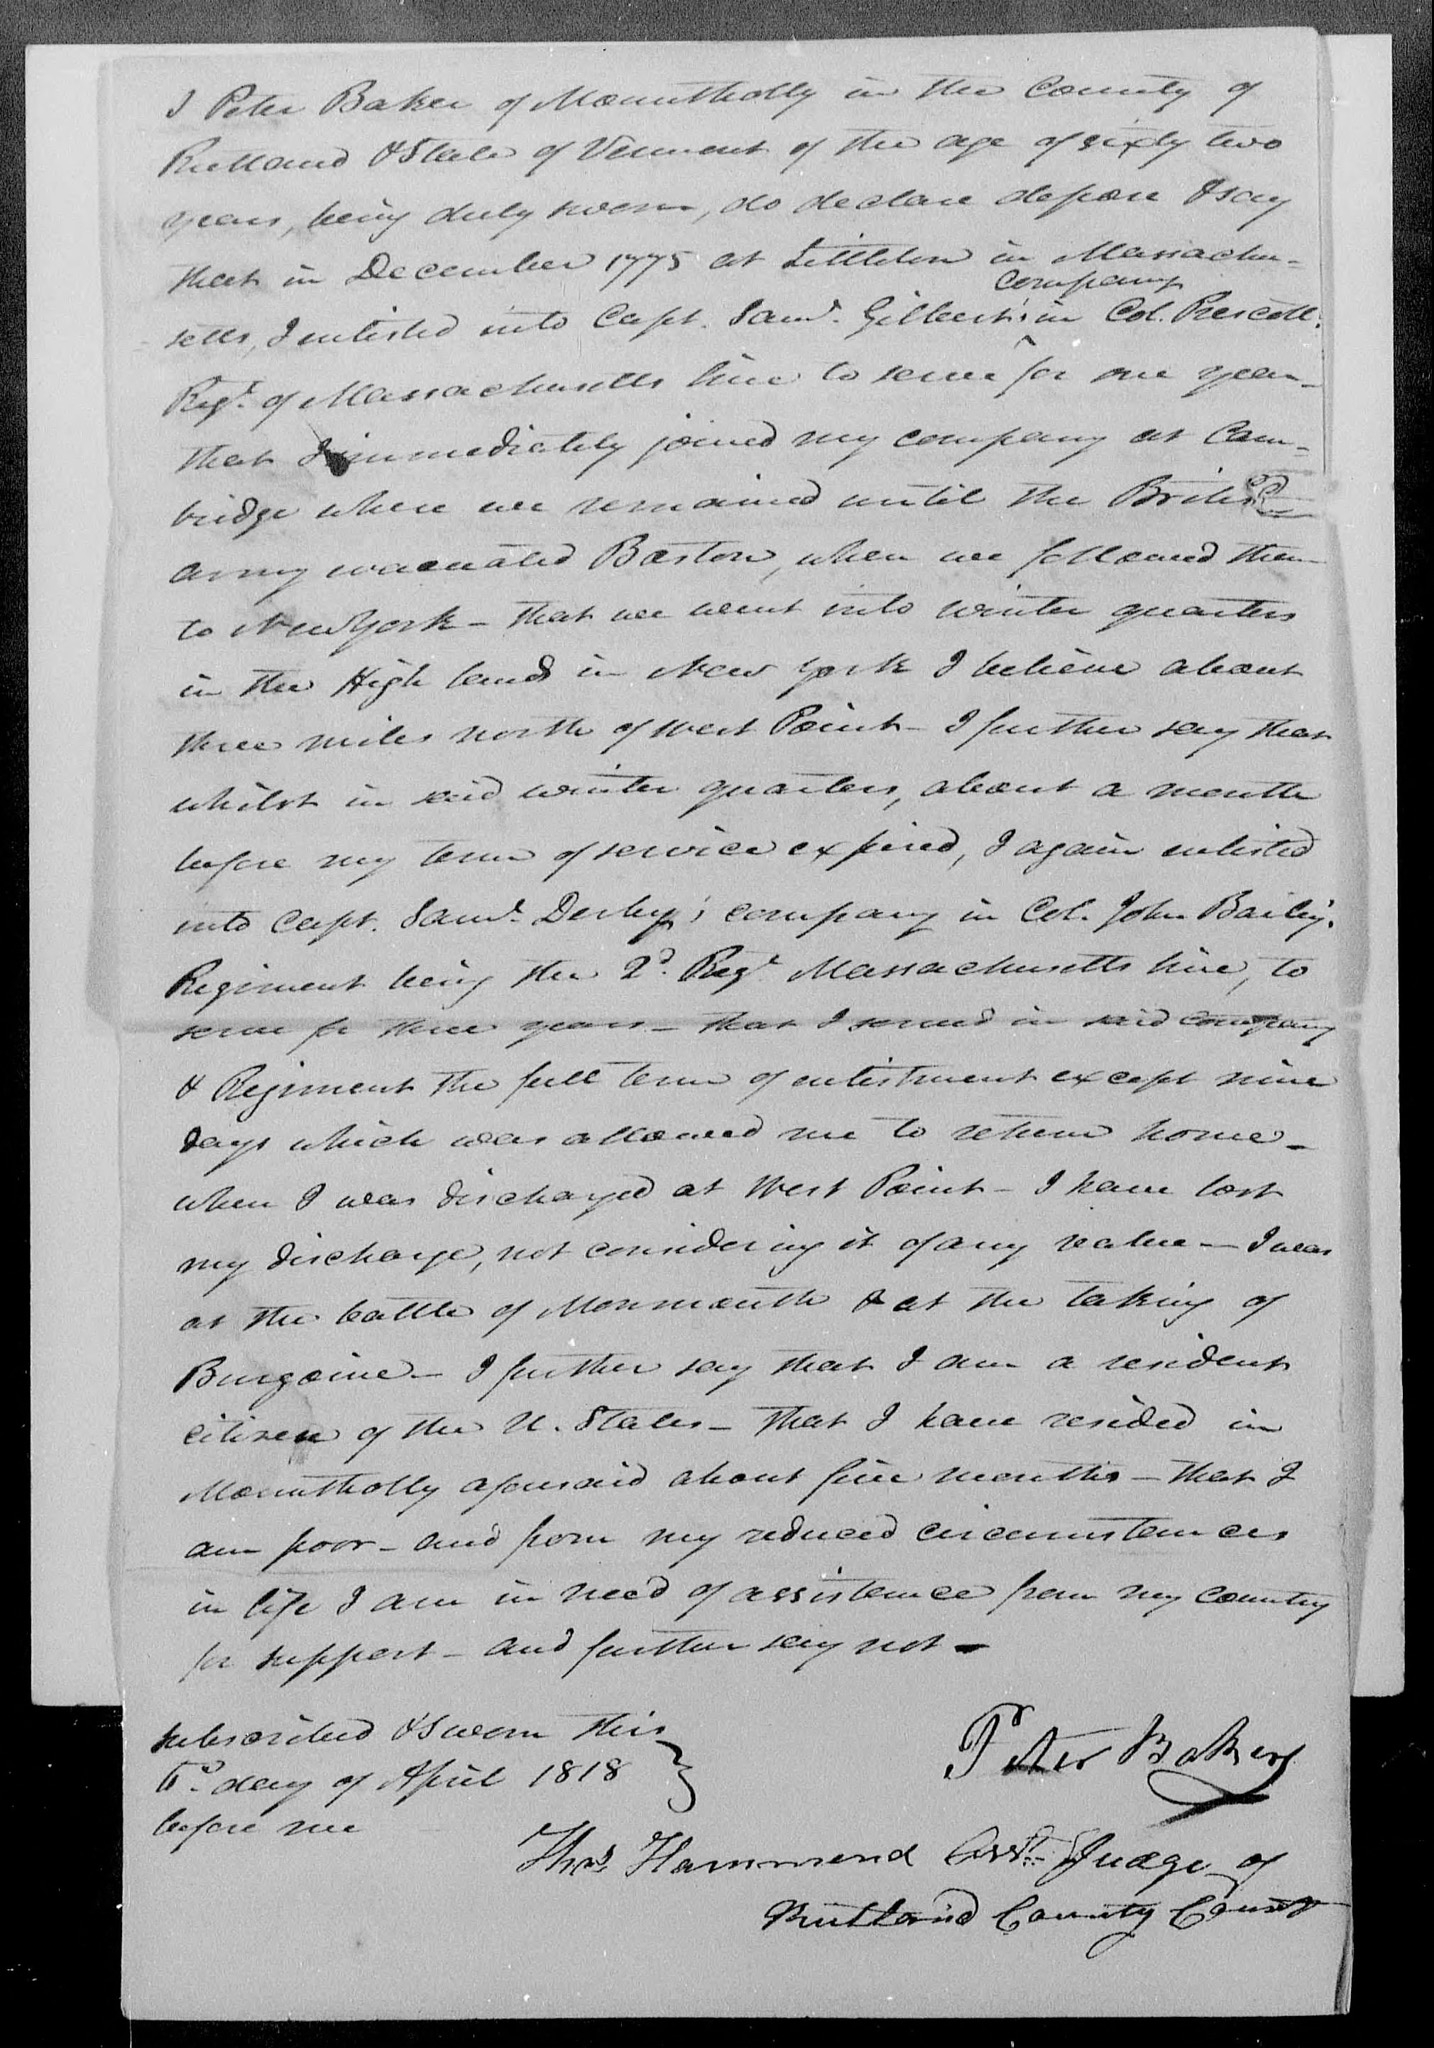 I Peter Baker of Mountholly in the County of
Rutland & State of Vermont of the age of sixty two
years, being duly sworn, do declare depose & say
that in December 1775 at Littleton in Massachu-
company
setts, I enlisted into Capt. Saml. Gilbert's in Col. Prescott's
Regt. of Massachusetts line to serve for one year -
that I immediately joined my company at Cam-
bridge where we remained until the British
army evacuated Boston, when we followed them
to New York - that we went into winter quarters
in the High lands in New York I believe about
three miles north of West Point - I further say that
whilst in said winter quarters, about a month
before my term of service expired, I again enlisted
into Capt. Saml. Derby's company in Col. John Bailey's
Regiment being the 2d. Regt. Massachusetts line, to
serve for three years - that I served in said company
& Regiment the full term of enlistment except nine
days which was allowed me to return home -
when I was discharged at West Point - I have lost
my discharge, not considering it of any value - I was
at the battle of Monmouth & at the taking of
Burgoine - I further say that I am a resident
citizen of the U. States - that I have resided in
Mountholly aforesaid about five months - that I
am poor - and from my reduced circumstances
in life I am in need of assistance from my country
for support - and further say not -
subscribed & sworn this
day of April 1818
before me
Peter Baker
Thos. Hammond Asst. Judge of
Rutland County Court